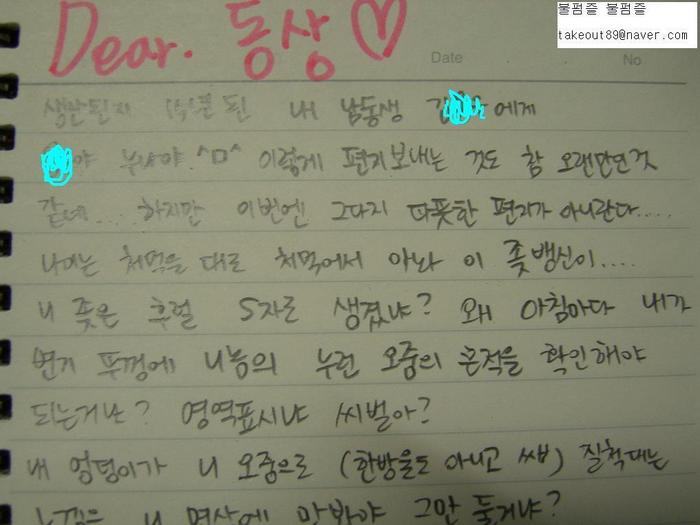 불펌즐 불펌즐
takeout89@naver.com
Dear. 동상♡
Date No
생산된지 된 내 남동생 김 에게
야 누나야 ^ㅁ^ 이렇게 편지보내는 것도 참 오랜만인것
같네.... 하지만 이번엔 그다지 따뜻한 편지가 아니란다.....
나이는 처먹을 대로 처먹어서 아놔 이 좃뱅신이....
니 좃은 후럴 S자로 생겼냐? 왜 아침마다 내가
변기 뚜껑에 니놈의 누런 오줌의 흔적을 확인해야
되는거냐? 영역표시냐 씨벌아?
내 엉덩이가 니 오줌으로 (한방울도 아니고 쌉) 질척대는
느낌은 니 면상에 맞봐야 그만 둘거냐?